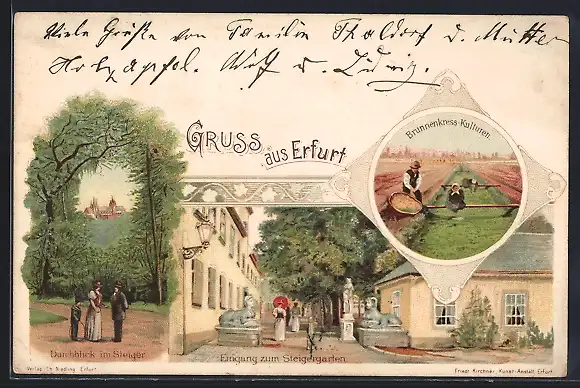 Viele Grüße von Familie Thaldorf u. Mutter
Holzapfel. u. Ludwig.
GRUSS aus Erfurt
Brunnenkress-Kulturen.
Durchblick im Steiger
Eingang zum Steigergarten.
Verlag Th. Niedling Erfurt
Friedr. Kirchner, Kunst-Anstalt Erfurt